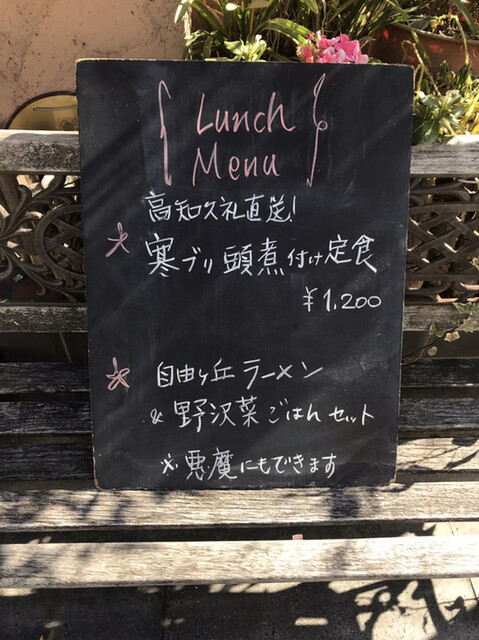 Lunch
Menu
高知久礼直送!
寒ブリ頭煮付け定食
¥1,200
自由ヶ丘ラーメン
& 野沢菜ごはんセット
※悪魔にもできます